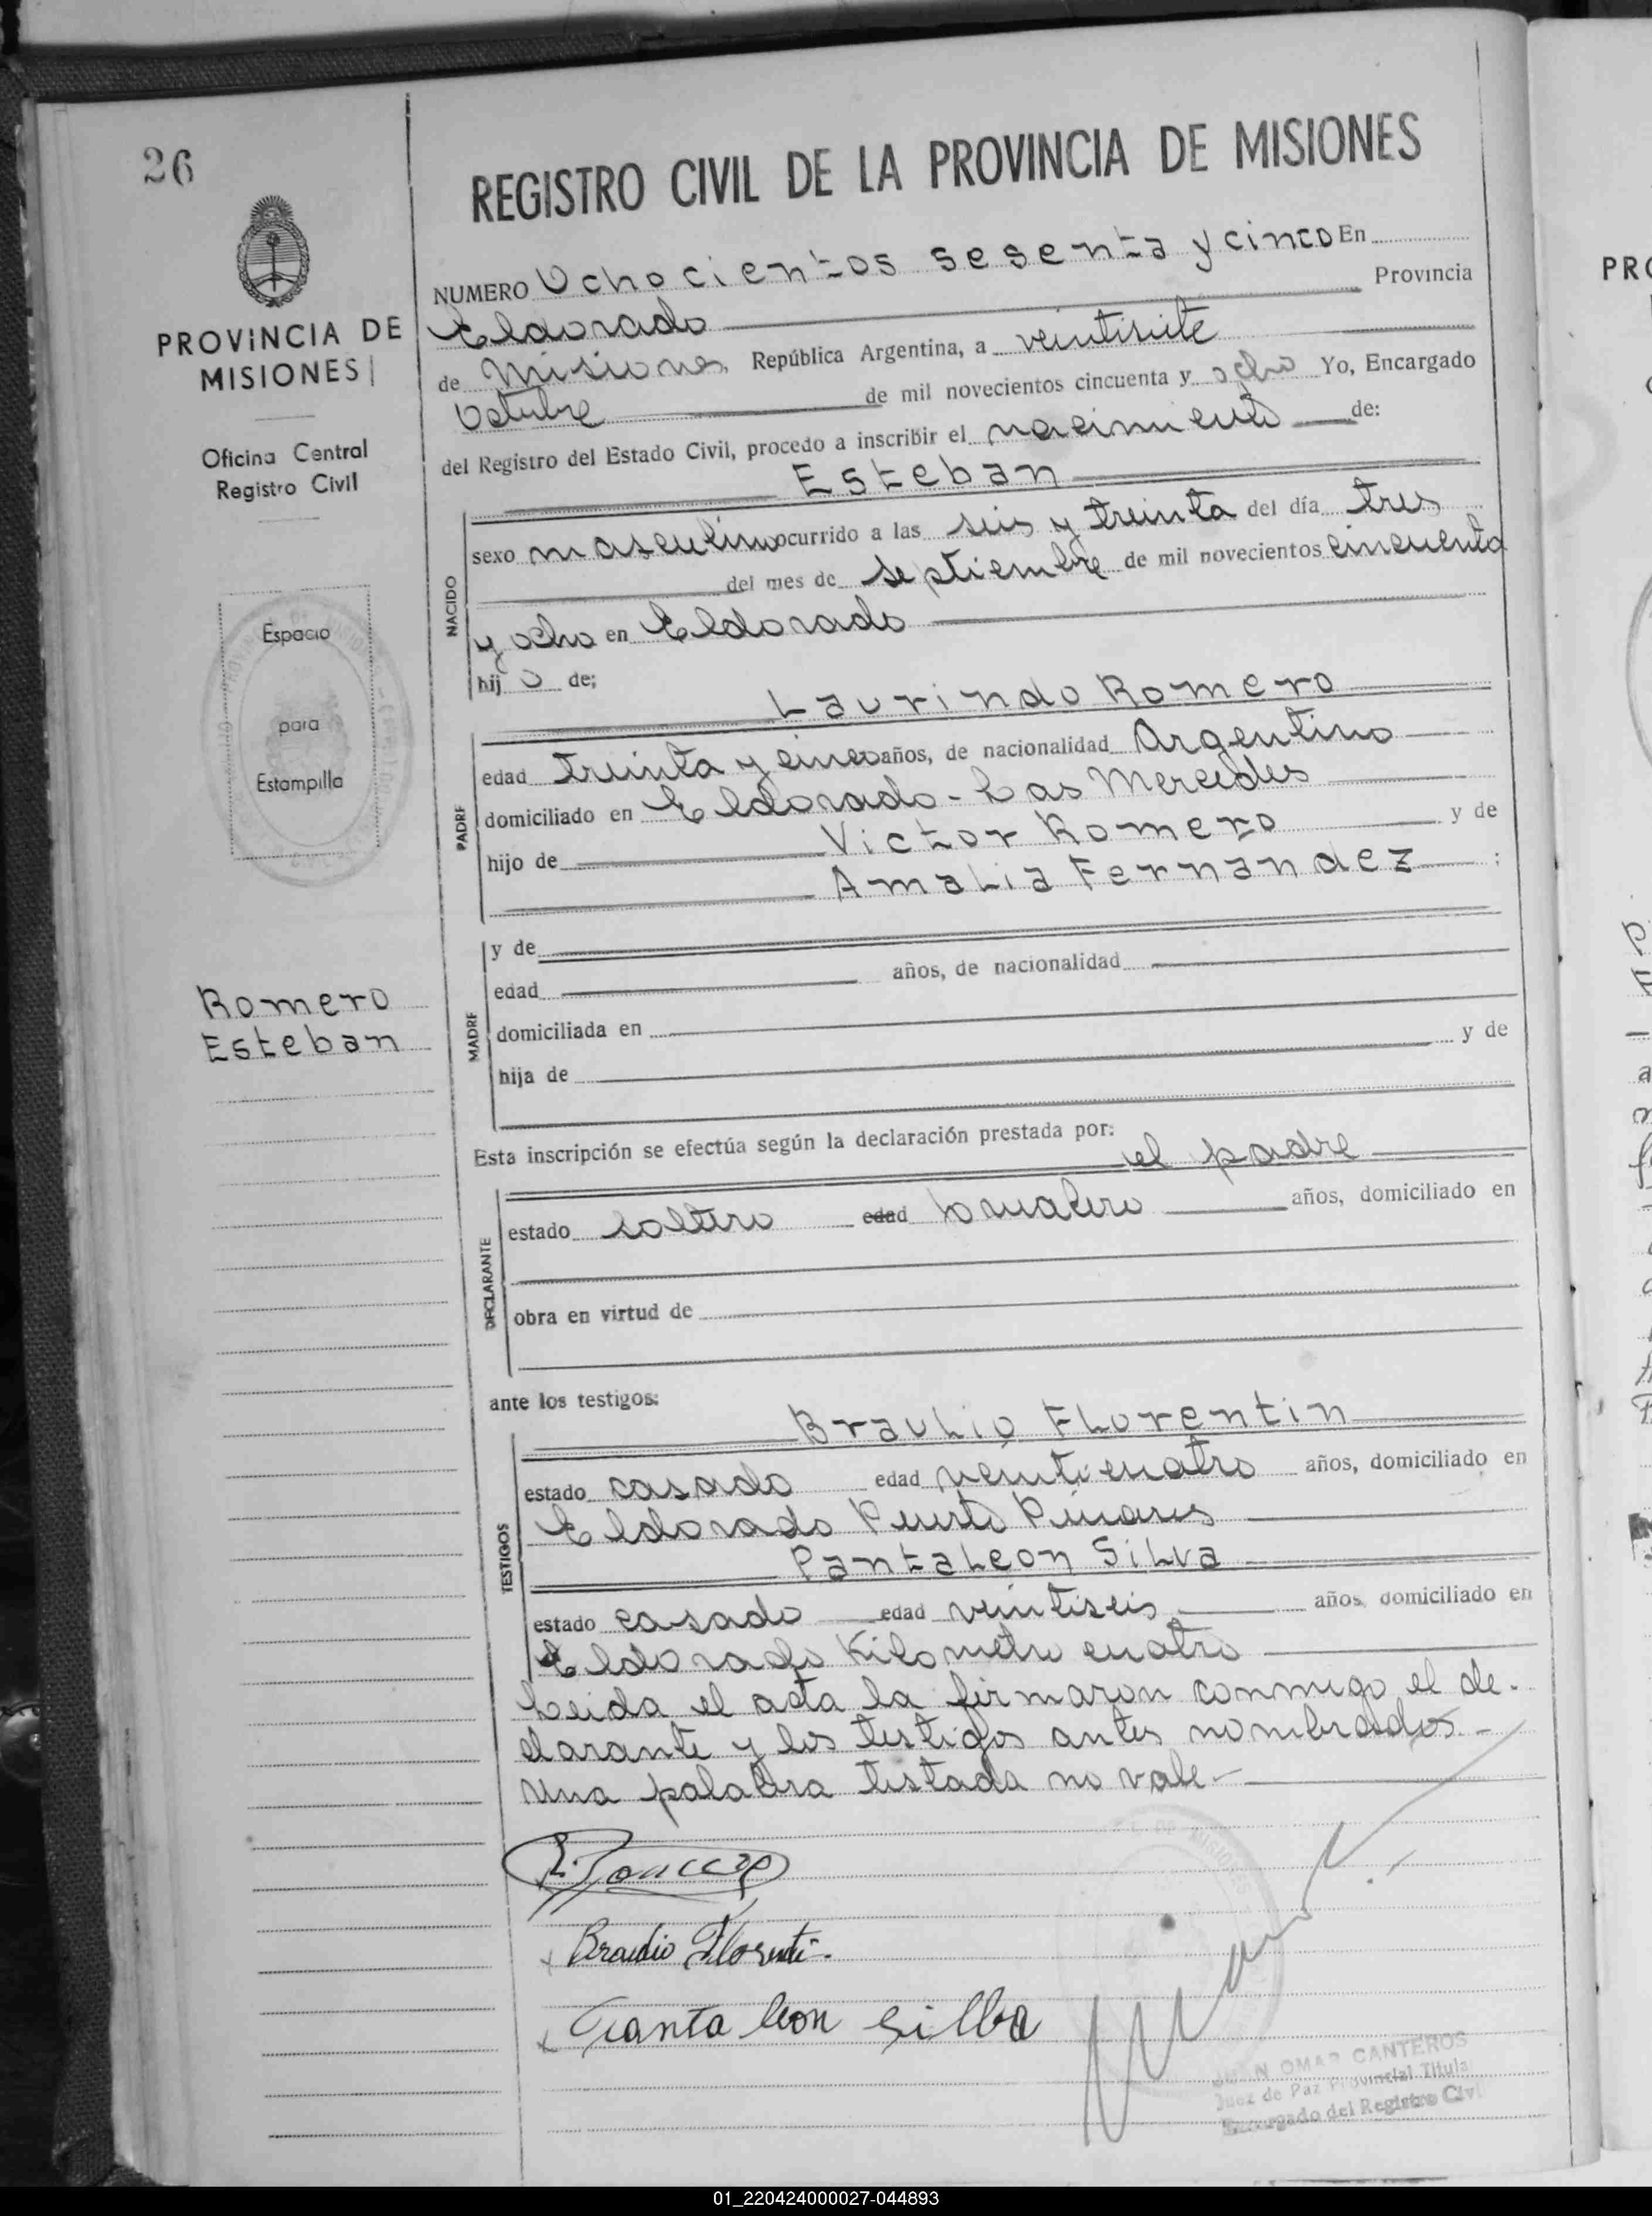 26
REGISTRO CIVIL DE LA PROVINCIA DE MISIONES
PROVINCIA DE
MISIONES
Oficina Central
Registro Civil
Espacio
para
Estampilla
Romero
Esteban
NUMERO Ochocientos sesenta y cinco En
Eldorado Provincia
de Misiones República Argentina, a veintisiete
Octubre de mil novecientos cincuenta y ocho Yo, Encargado
del Registro del Estado Civil, procedo a inscribir el nacimiento de:
Esteban
NACIDO
sexo masculino ocurrido a las seis y treinta del día tres
del mes de septiembre de mil novecientos cincuenta
y ocho en Eldorado
hijo de;
Laurindo Romero
PADRE
edad treinta y cinco años, de nacionalidad Argentino
domiciliado en Eldorado - Las Mercedes
hijo de Victor Romero y de
Amalia Fernandez ;
MADRE
y de
edad años, de nacionalidad
domiciliada en
hija de y de
Esta inscripción se efectúa según la declaración prestada por:
el padre
DECLARANTE
estado soltero edad años, domiciliado en
obra en virtud de
ante los testigos:
Braulio Florentin
TESTIGOS
estado casado edad veinticuatro años, domiciliado en
Eldorado Puerto Pinares
Pantaleon Silva
estado casado edad veintiseis años, domiciliado en
Eldorado Kilometro cuatro
Leida el acta la firmaron conmigo el de-
clarante y los testigos antes nombrados -
Una palabra testada no vale -
Braulio Florentin
Panta leon Silba
JUAN OMAR CANTEROS
Juez de Paz Provincial Titular
Encargado del Registro Civil
PRO
01_220424000027-044893